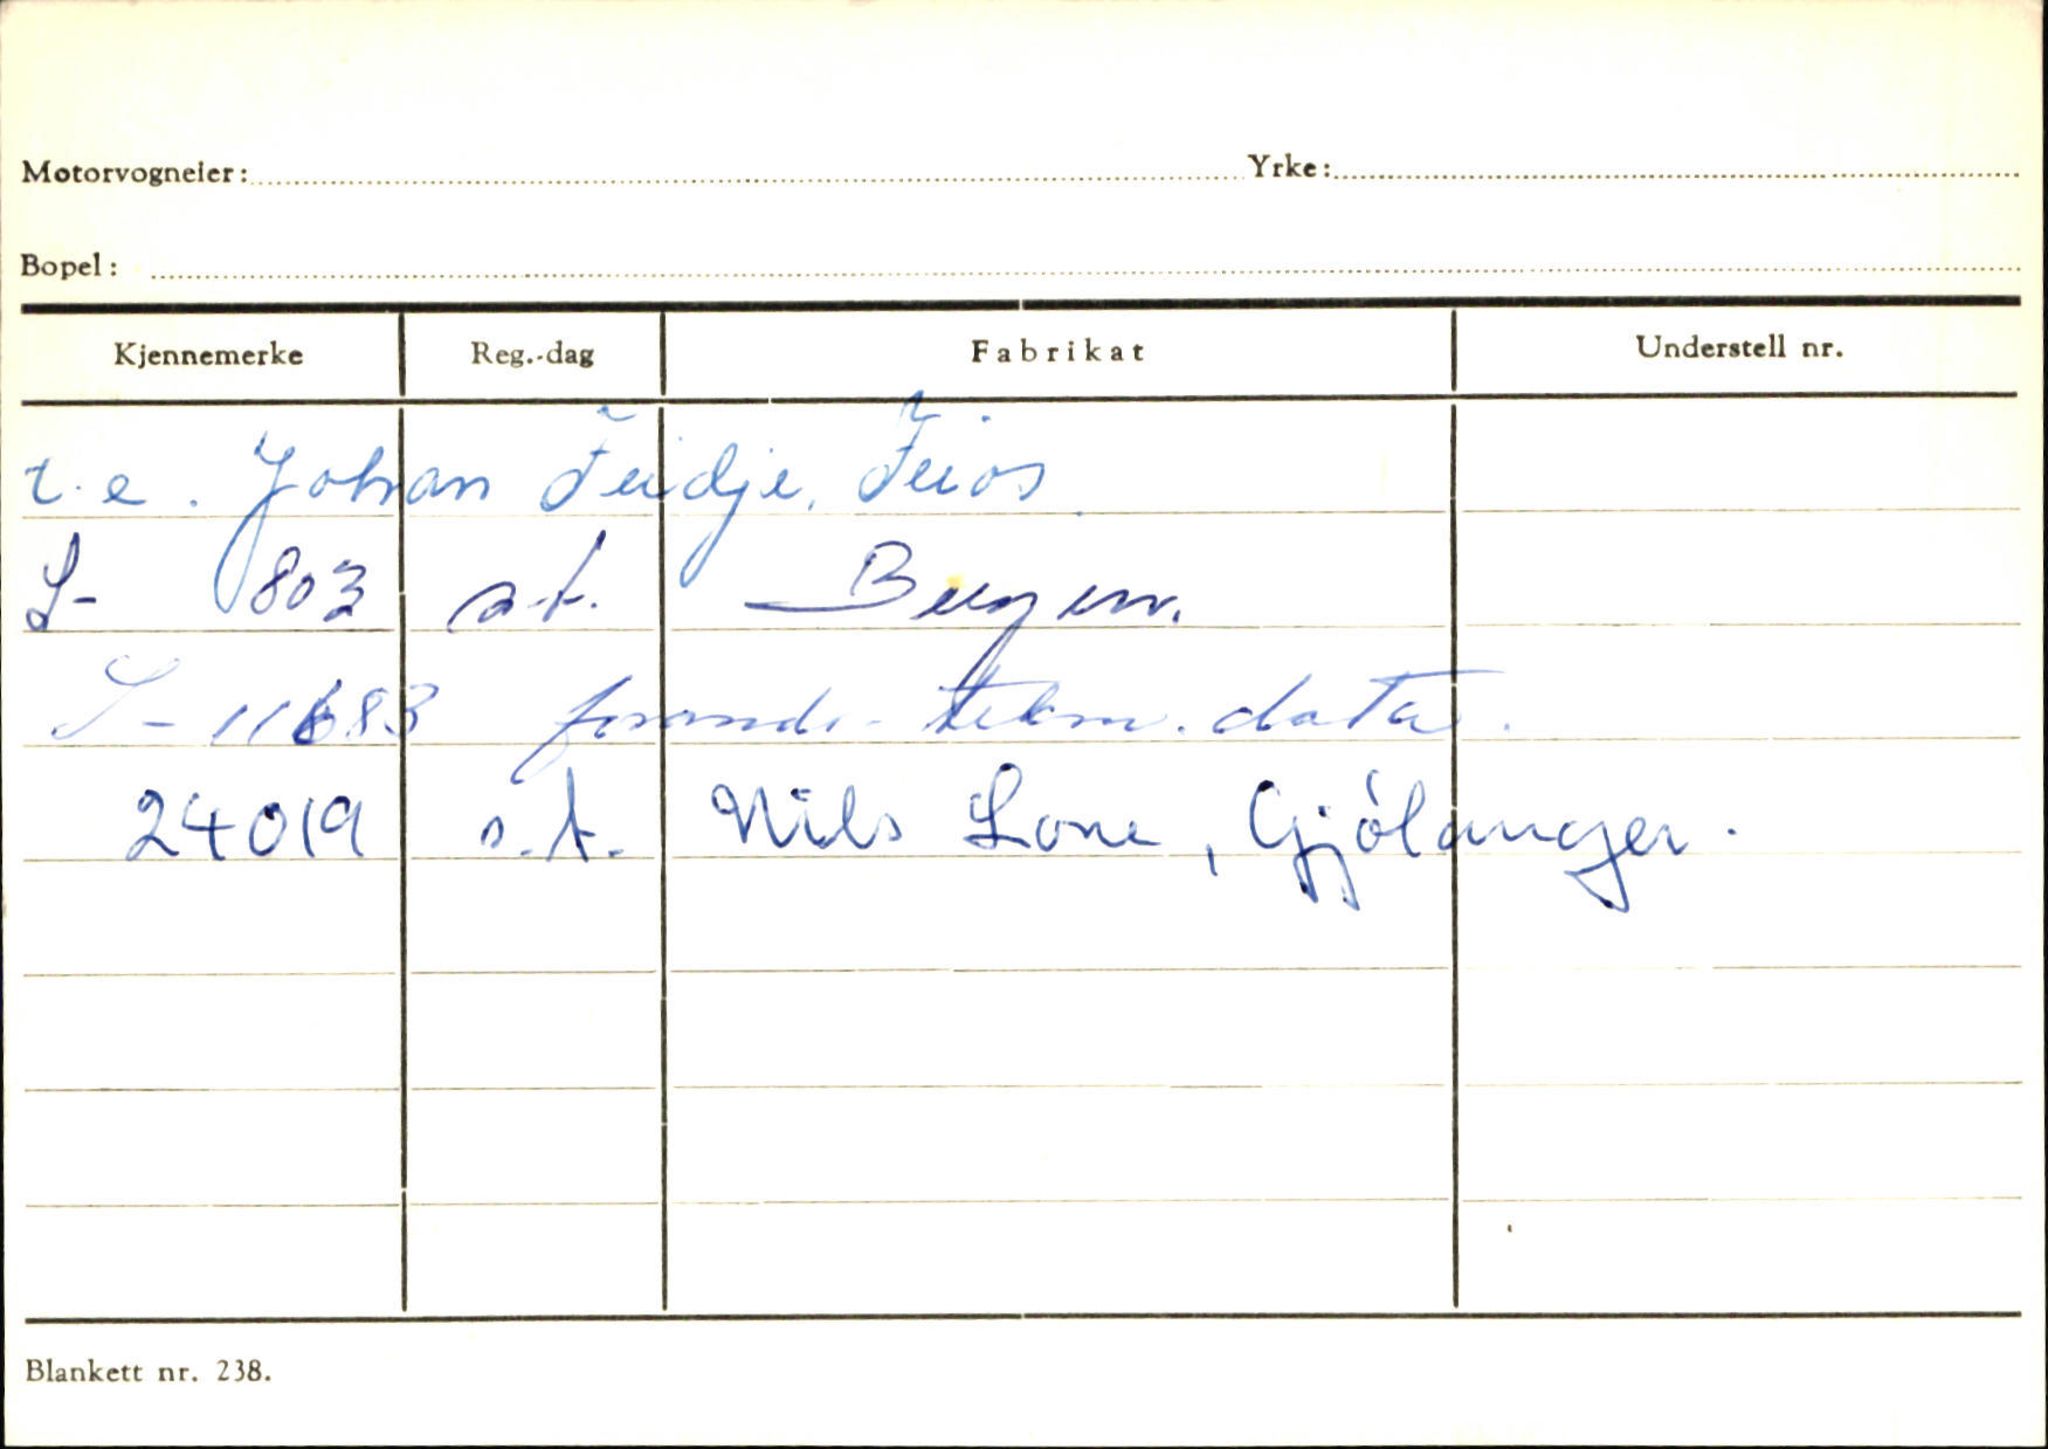 Motorvogneier: Yrke:
Bopel:
Kjennemerke Reg.-dag Fabrikat Understell nr.
t.e. Johan Feidje, Feios.
S- 803 s.t. Bergen.
S-11683 forand. tekn. data.
24019 s.t. Nils Lone, Gjølanger.
Blankett nr. 238.